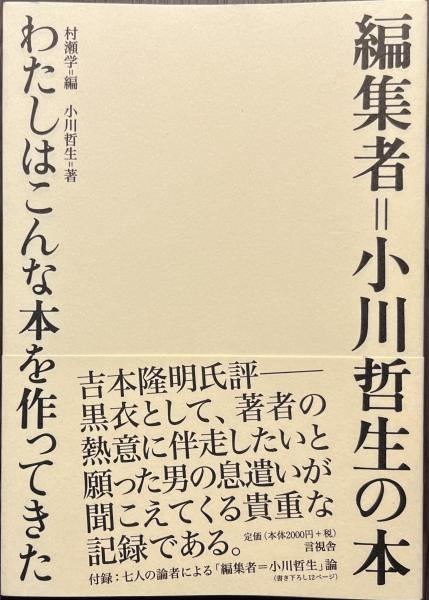 編集者=小川哲生の本
わたしはこんな本を作ってきた
村瀬学=編　小川哲生=著
吉本隆明氏評――
黒衣として、著者の
熱意に伴走したいと
願った男の息遣いが
聞こえてくる貴重な
記録である。
定価(本体2000円+税)
言視舎
付録:七人の論者による「編集者=小川哲生」論
(書き下ろし12ページ)